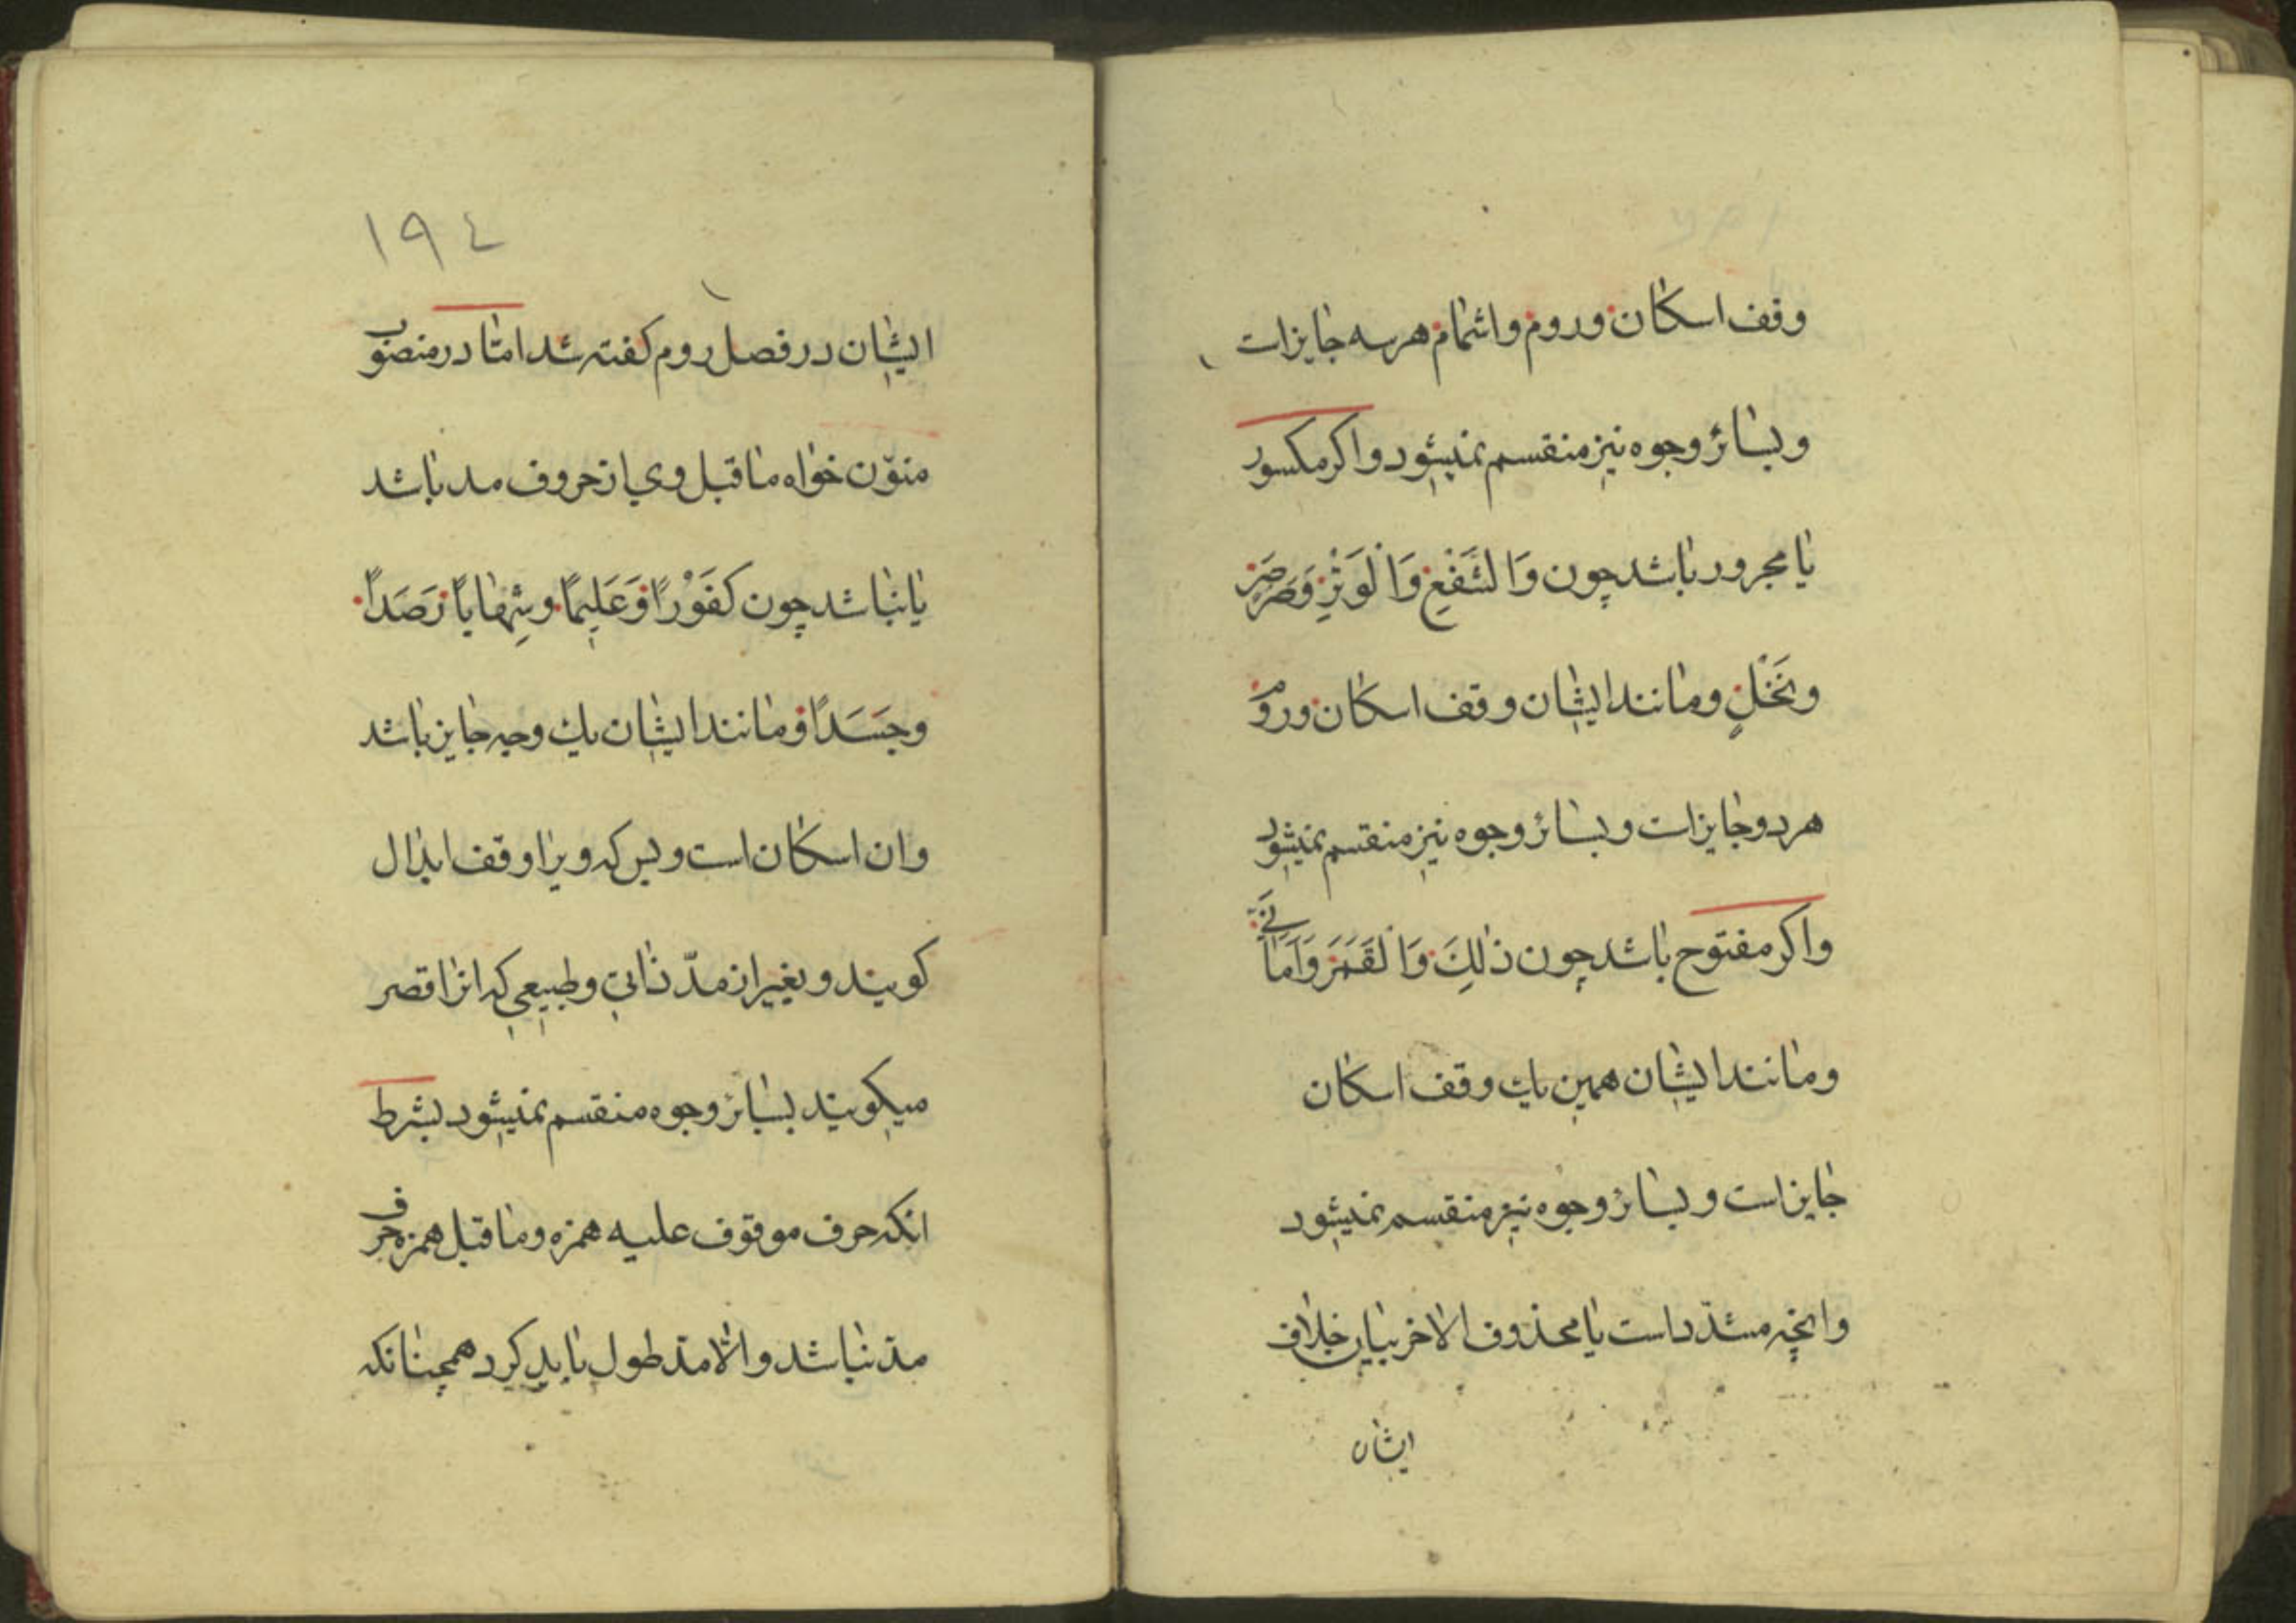 وقف اسکان و روم و اشمام هر سه جایز است
و بسائر وجوه نیز منقسم نمیشود و اکر مکسور
یا مجرور باشد چون وَالشَّفْعِ وَالْوَتْرِ وَصَرْصَرٍ
وَنَخْلٍ و مانند ایشان وقف اسکان و روم
هر دو جایز است و بسائر وجوه نیز منقسم نمیشود
و اکر مفتوح باشد چون ذٰلِكَ وَالْقَمَرَ وَاَمَانِيَّ
و مانند ایشان همین یك وقف اسکان
جایز است و بسائر وجوه نیز منقسم نمیشود
و انچه مشدّد است یا محذوف الاخر بیان خلاف
ایشان
١٩٤
ایشان در فصل روم کفته شد امّا در منصوب
منوّن خواه ماقبل وی از حروف مد باشد
یا نباشد چون كَفُوْرًا وَعَلِيمًا وشِهَابًا رَصَدًا
وجَسَدًا و مانند ایشان یك وجه جایز باشد
و ان اسکان است و بس که ویرا وقف ابدال
کویند و بغیر از مدّ ذاتی و طبیعی که انرا قصر
میکویند بسائر وجوه منقسم نمیشود بشرط
انکه حرف موقوف علیه همزه و ماقبل همزه حرف
مدّ نباشد و الّا مدّ طول باید کرد همچنانکه